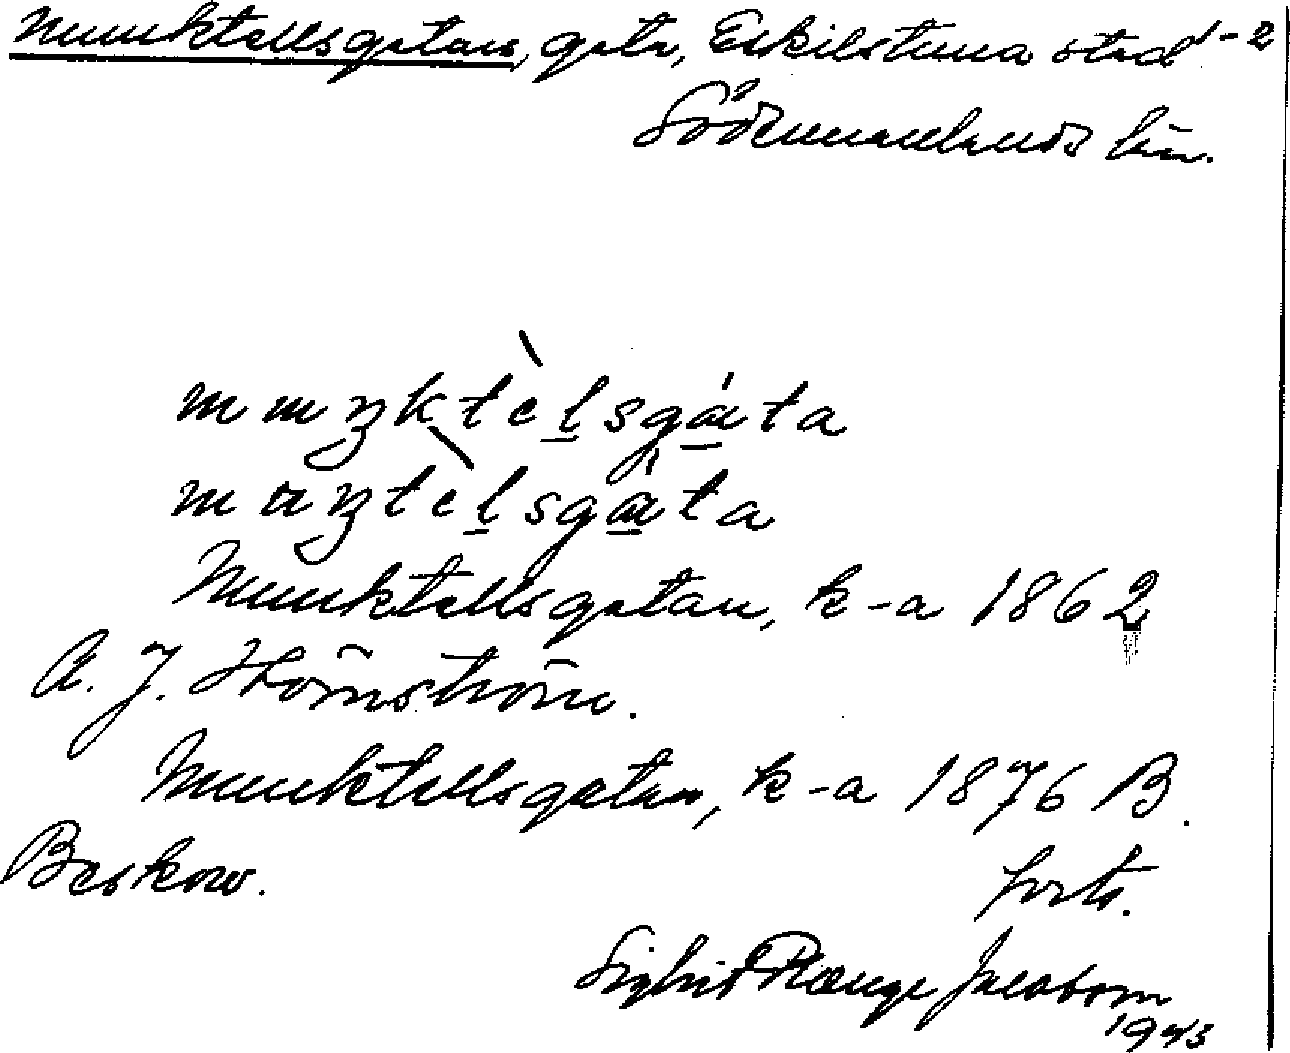 Munktellsgatan, gata, Eskilstuna stad 1-2
Södermanlands län.
Munktellsgatan, k-a 1862
A. J. Hörnström.
Munktellsgatan, k-a 1876 B.
Beskow.
forts.
Sigbrit Plænge Jacobson
1943